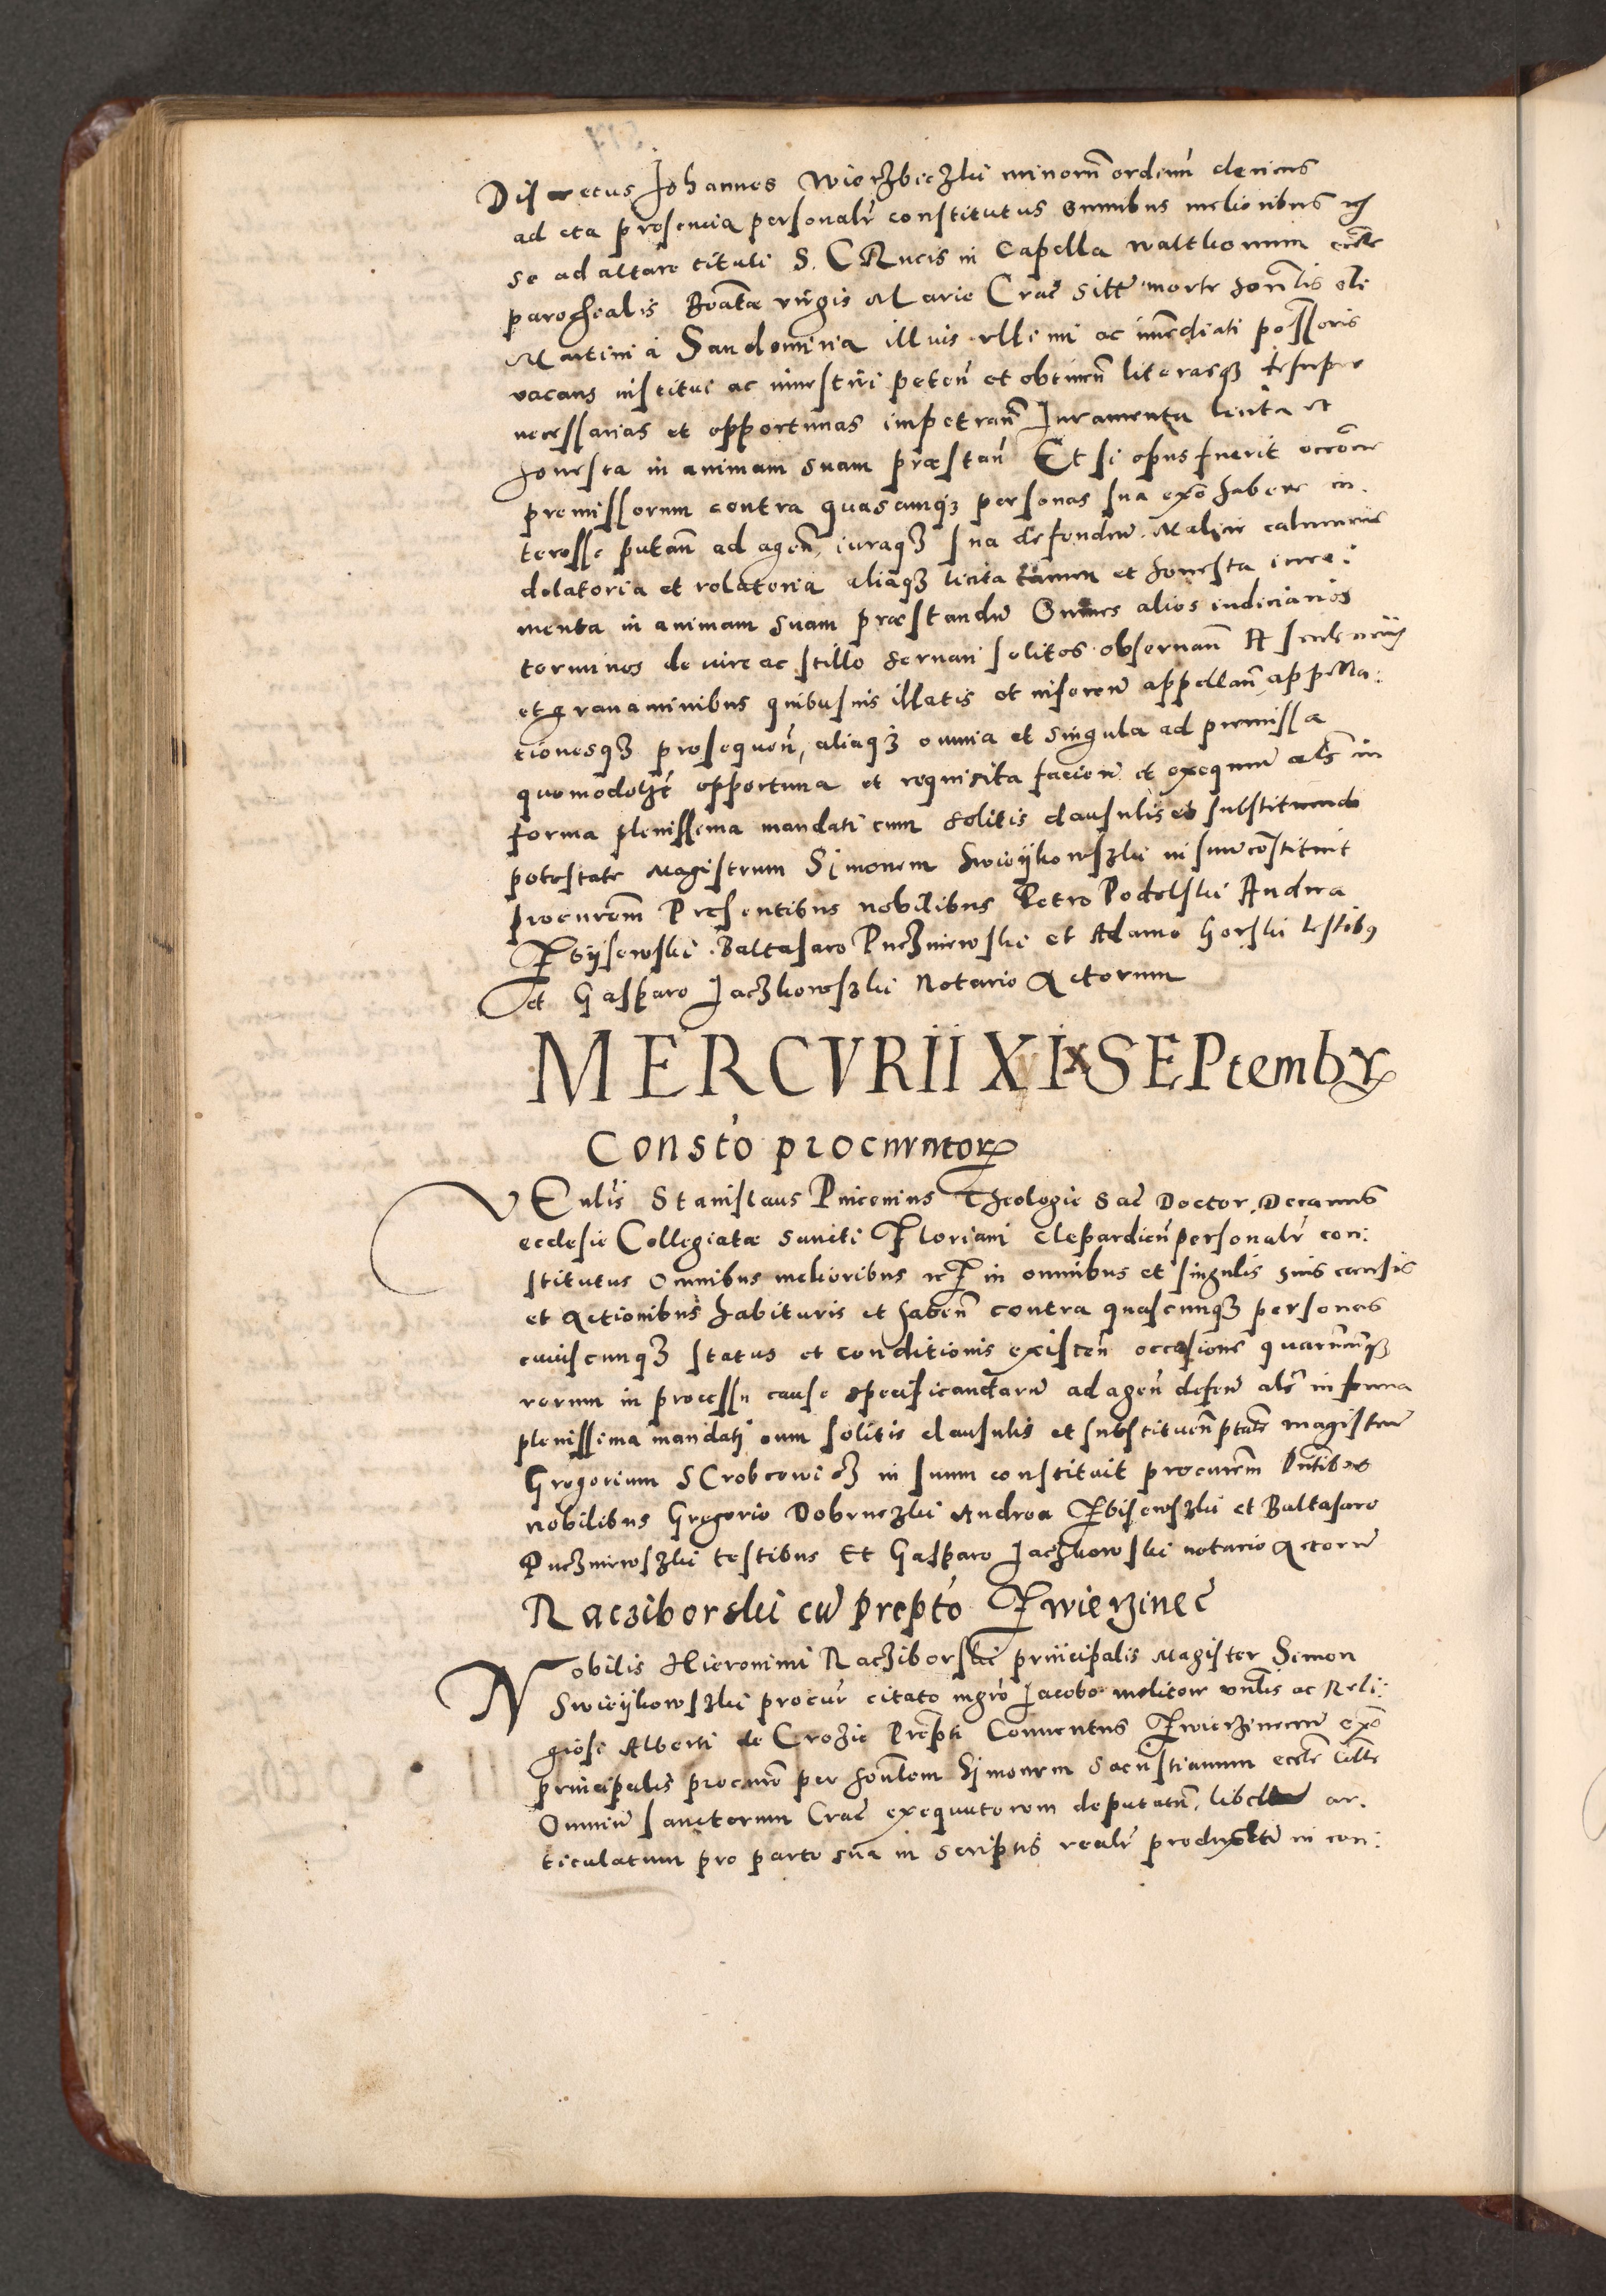 Discretus Johannes Wierzbieczki minorũ ordinũ clericus
ad eta presencia personalr̃ constitutus omnibus melioribus etc
se ad altare tituli S. CRucis in Capella walthorum eccłe
parochialis Beatæ virgĩs Marie Crac̃ sitũ morte honłis oł
Martini à Sandomiria illius ułłimi ac imediati possoris
vacans institui ac inuestiri peteñ et obtineñ literasqz desuper
necessarias et opportunas impetrañ Juramenta licita et
honesta in animam suam præstañ Et si opus fuerit occõne
premissorum contra quascumqz personas sua exõ habere in.
teresse putañ ad ageñ iuraqz sua defendeñ. Malicie calumnie
delatoria et relatoria aliaqz licita tamen et honesta iura:
menta in animam suam præstandũ Omnes alios iudiciarios
terminos de iure ac stillo seruari solitos obseruañ A sentencijs
et grauaminibus quibusuis illatis et inferenũ appellañ appella:
tionesqz prosequeñ, aliaqz omnia et singula ad premissa
quomodolizt opportuna et requisita facieñ et exequeñ als in
forma plenissima mandati cum solitis clausulis et substituendo
potestate Magistrum Simonem Swieijkowszki in suũ constituit
procurem̃ Presentibus nobilibus Petro Podolski Andrea
Rbijsewski Baltasaro Puczniewski et Adamo Gorski testibus
Et Gasparo Jaczkowszki Notario Actorum
MERCVRII XIX SEPtembr
Constō procuratorꝝ
VEnłis Stanislaus Pniconius Theologie Sac̃ Doctor Decanus
ecclesie Collegiatæ Sancti Floriani Clepardieñ personalr̃ con:
stitutus omnibus melioribus etc in omnibus et singulis suis causis
et Actionibus habituris et habeñ contra quascunqz personas
cuiuscunqz status et conditionis existeñ occasione quarũcũqz
rerum in processu cause specificandarũ ad ageñ defeñ als in forma
plenissima mandatj cum solitis clausulis et substitueñ ptate magistrũ
Gregorium SCrobcowicz in suum constituit procurem̃ Pñtibus
nobilibus Gregorio Dobruczki Andrea Rbisewszki et Baltasaro
Puczniewszki testibus Et Gasparo Jaczkowski notario Actorũ
Racziborski cũ prepto Zwierzinec̃
Nobilis Hieronimi Racziborski principalis Magister Simon
Swieijkowszki procur̃ citato mgrõ Jacobo molitore vñłis ac Reli:
giosi Alberti de Crozie Prepti Conuentus Zwierzinecen̄ exõ
principalis procurẽ per honłem Simonem Sacristianum eccłe
Omniũ sanctorum Crac̃ exequutorem deputatũ, libellũ ar.
ticulatum pro parte sua in scriptis realr̃ produxit in con: